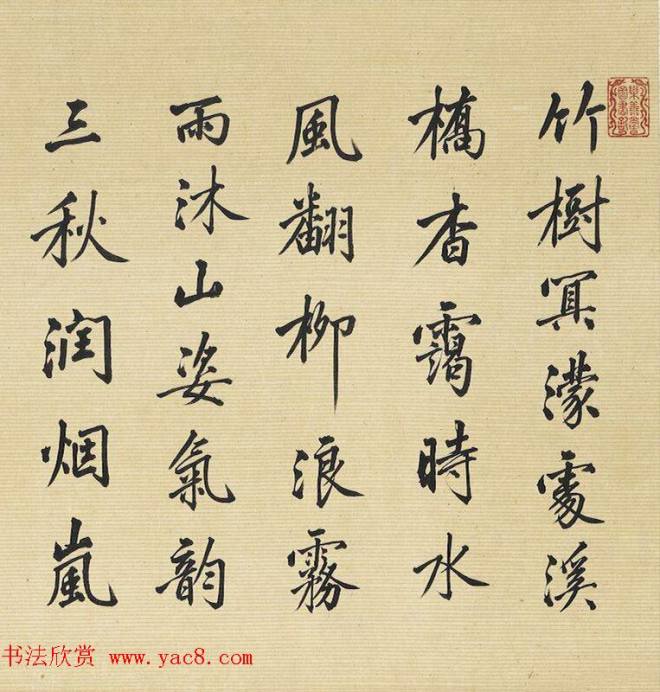 竹樹冥濛處溪
橋杳靄時水
風翻柳浪霧
雨沐山姿氣韵
三秋润烟嵐
书法欣赏 www.yac8.com